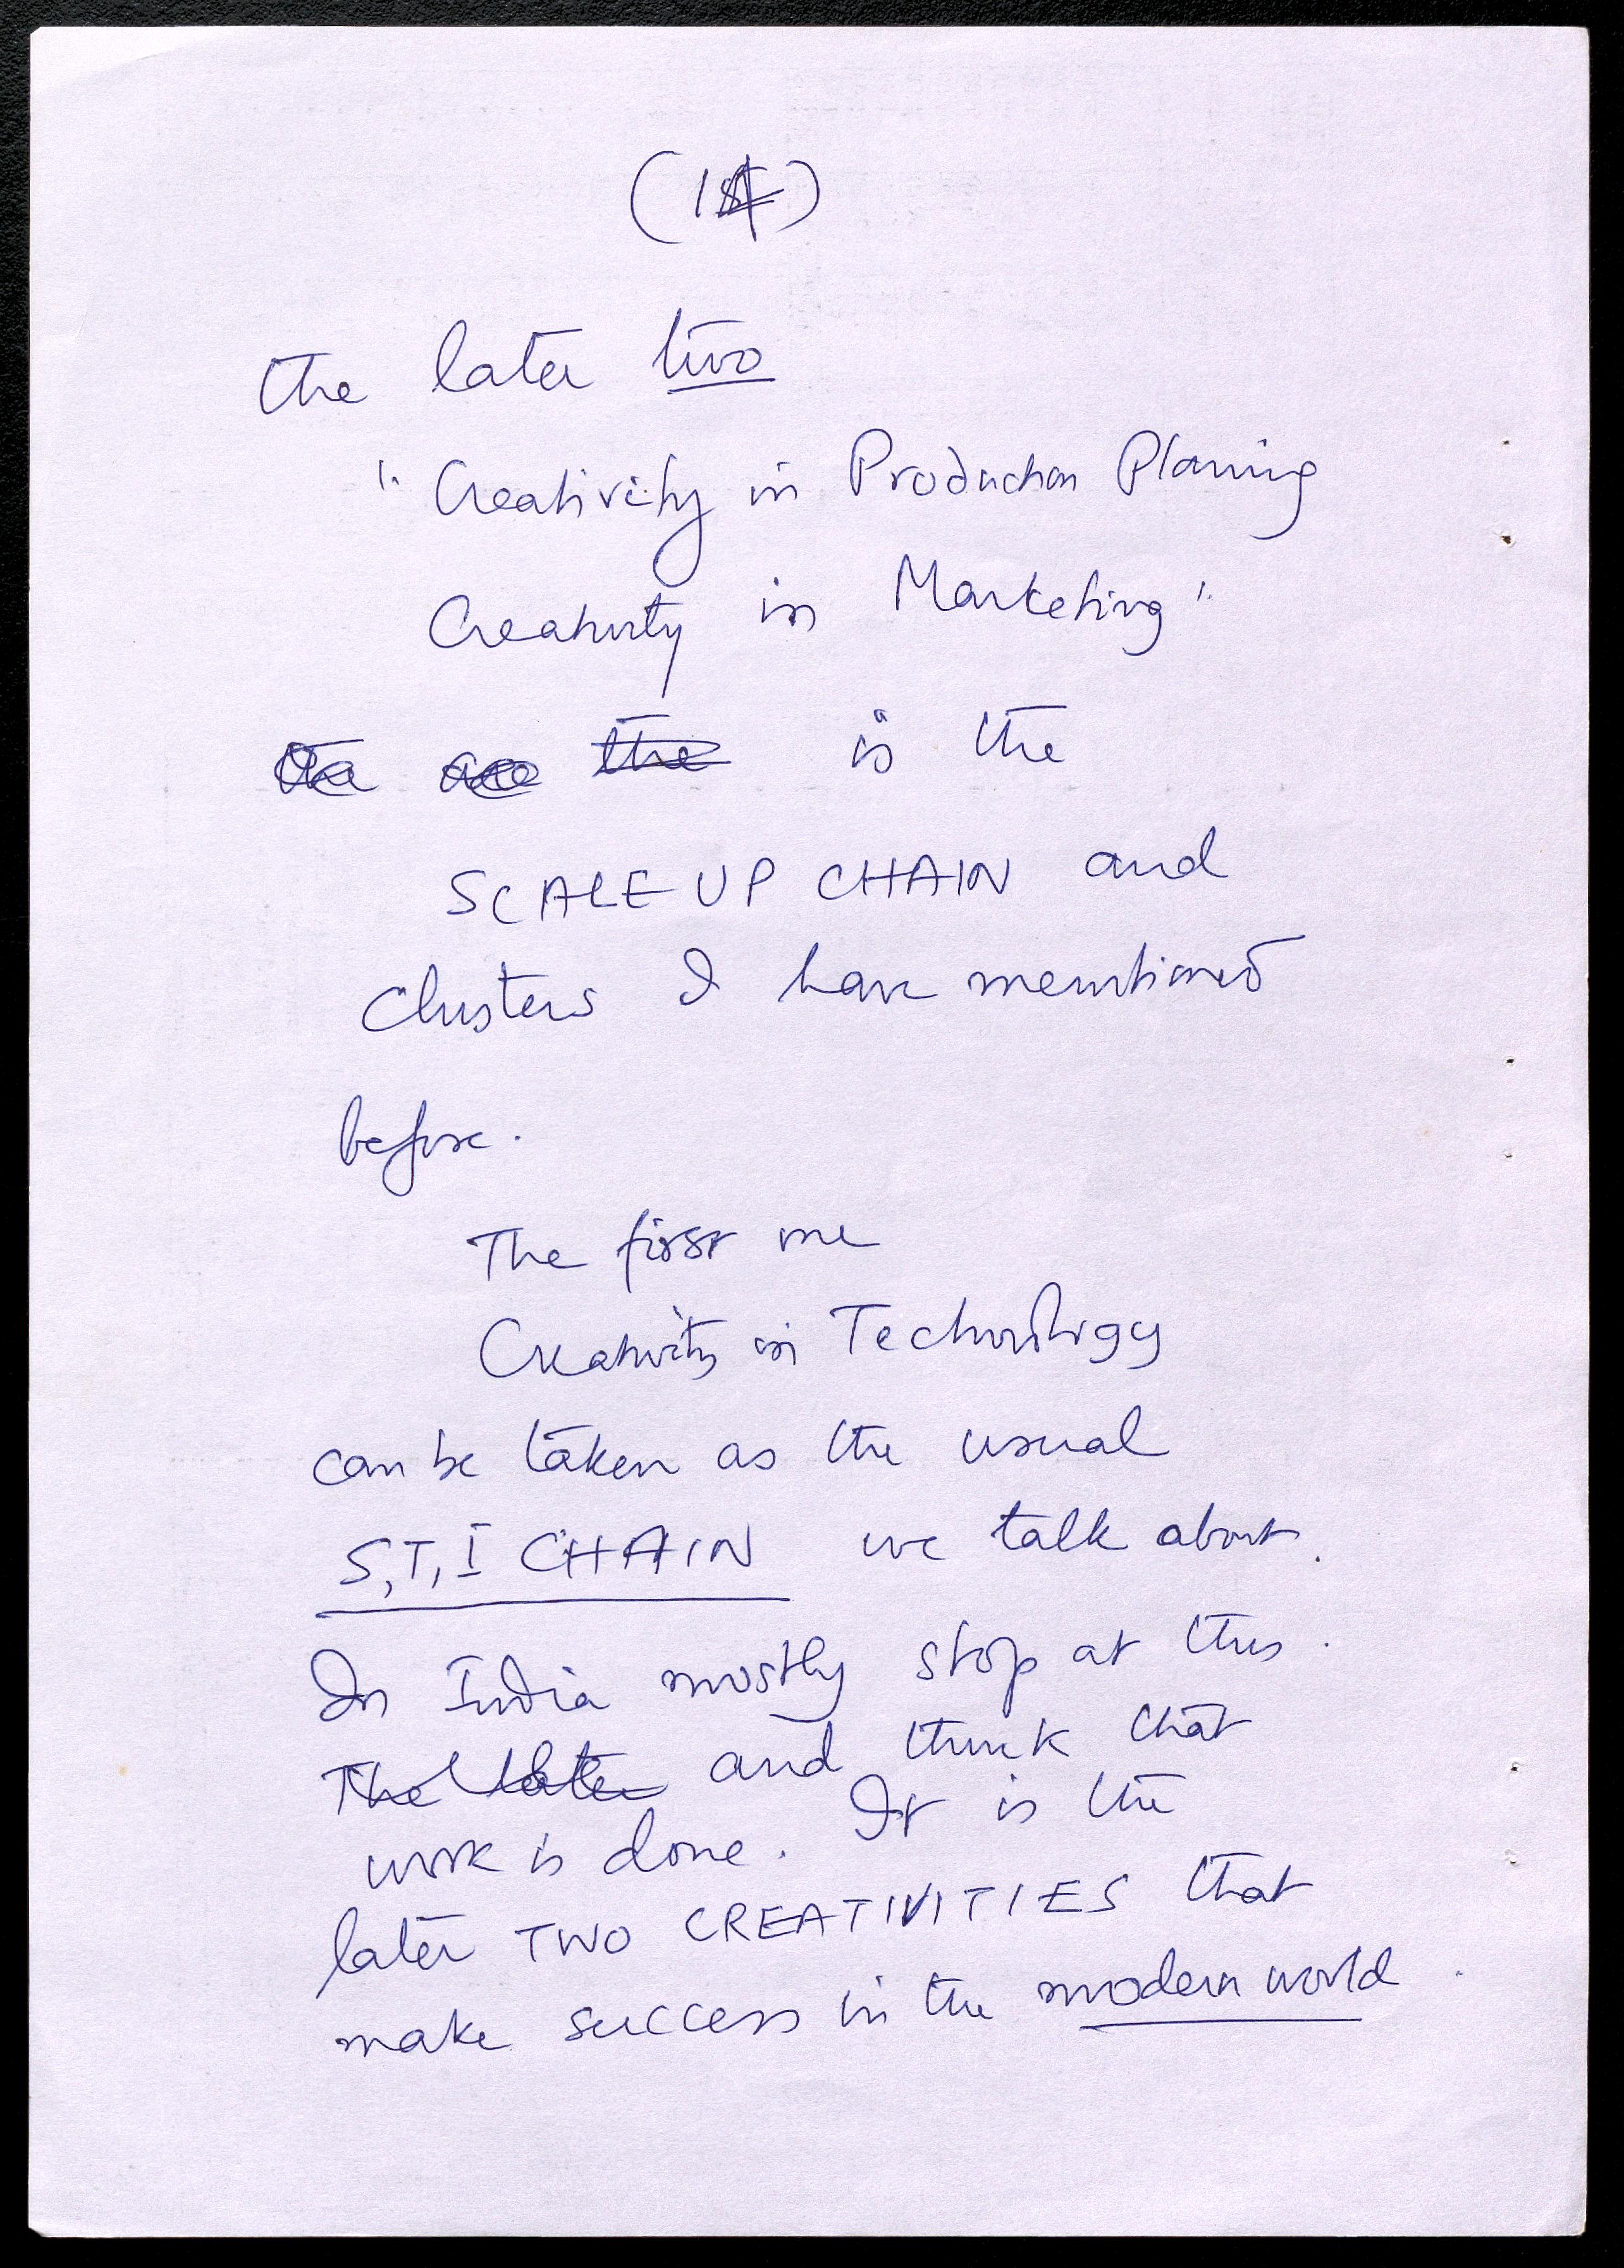 (14)
the later two
"Creativity in Production Planning
Creativity in Marketing"
the are the is the
SCALE UP CHAIN and
Clusters I have mentioned
before.
The first one
Creativity in Technology
can be taken as the usual
S,T,I CHAIN we talk about.
In India mostly stop at this.
The later and think that
work is done. It is the
later TWO CREATIVITIES that
make success in the modern world.